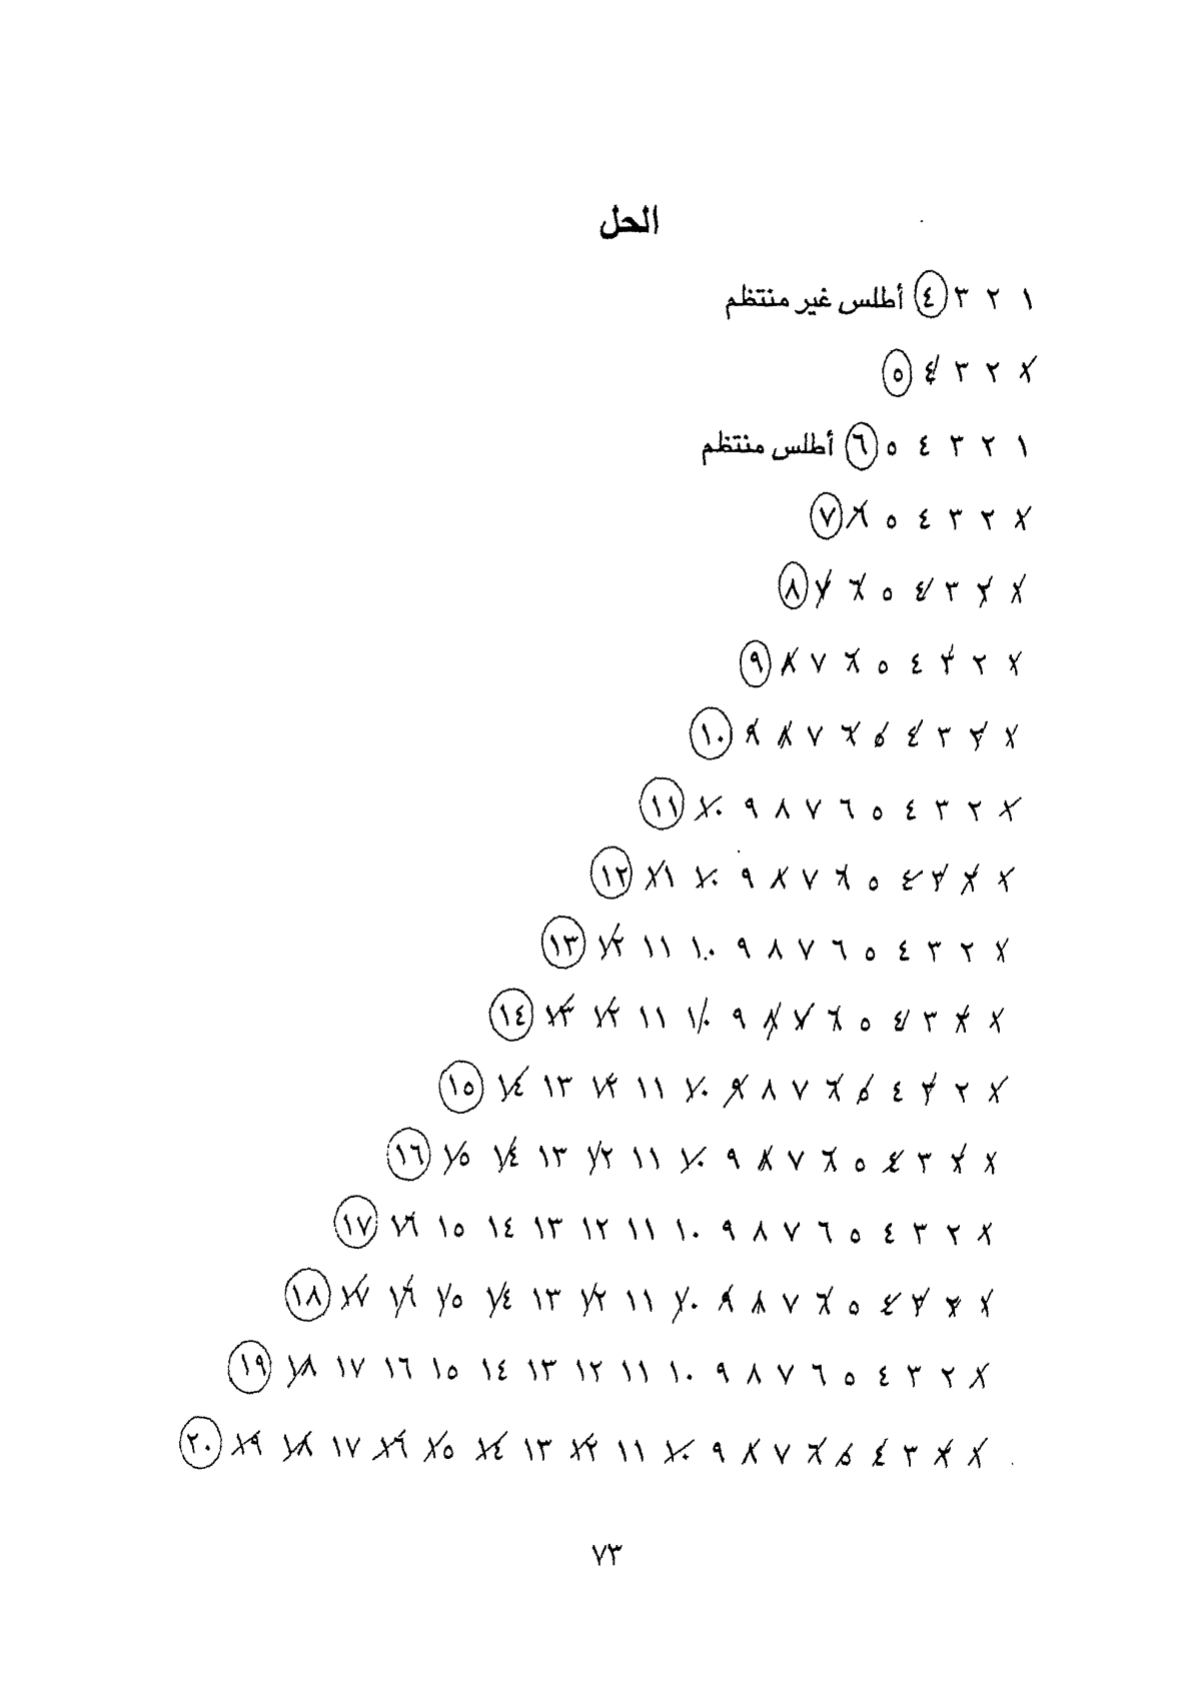 الحل
١ ٢ ٣ ٤ أطلس غير منتظم
١ ٢ ٣ ٤ ٥
١ ٢ ٣ ٤ ٥ ٦ أطلس منتظم
١ ٢ ٣ ٤ ٥ ٦ ٧
١ ٢ ٣ ٤ ٥ ٦ ٧ ٨
١ ٢ ٣ ٤ ٥ ٦ ٧ ٨ ٩
١ ٢ ٣ ٤ ٥ ٦ ٧ ٨ ٩ ١٠
١ ٢ ٣ ٤ ٥ ٦ ٧ ٨ ٩ ١٠ ١١
١ ٢ ٣ ٤ ٥ ٦ ٧ ٨ ٩ ١٠ ١١ ١٢
١ ٢ ٣ ٤ ٥ ٦ ٧ ٨ ٩ ١٠ ١١ ١٢ ١٣
١ ٢ ٣ ٤ ٥ ٦ ٧ ٨ ٩ ١٠ ١١ ١٢ ١٣ ١٤
١ ٢ ٣ ٤ ٥ ٦ ٧ ٨ ٩ ١٠ ١١ ١٢ ١٣ ١٤ ١٥
١ ٢ ٣ ٤ ٥ ٦ ٧ ٨ ٩ ١٠ ١١ ١٢ ١٣ ١٤ ١٥ ١٦
١ ٢ ٣ ٤ ٥ ٦ ٧ ٨ ٩ ١٠ ١١ ١٢ ١٣ ١٤ ١٥ ١٦ ١٧
١ ٢ ٣ ٤ ٥ ٦ ٧ ٨ ٩ ١٠ ١١ ١٢ ١٣ ١٤ ١٥ ١٦ ١٧ ١٨
١ ٢ ٣ ٤ ٥ ٦ ٧ ٨ ٩ ١٠ ١١ ١٢ ١٣ ١٤ ١٥ ١٦ ١٧ ١٨ ١٩
١ ٢ ٣ ٤ ٥ ٦ ٧ ٨ ٩ ١٠ ١١ ١٢ ١٣ ١٤ ١٥ ١٦ ١٧ ١٨ ١٩ ٢٠
٧٣